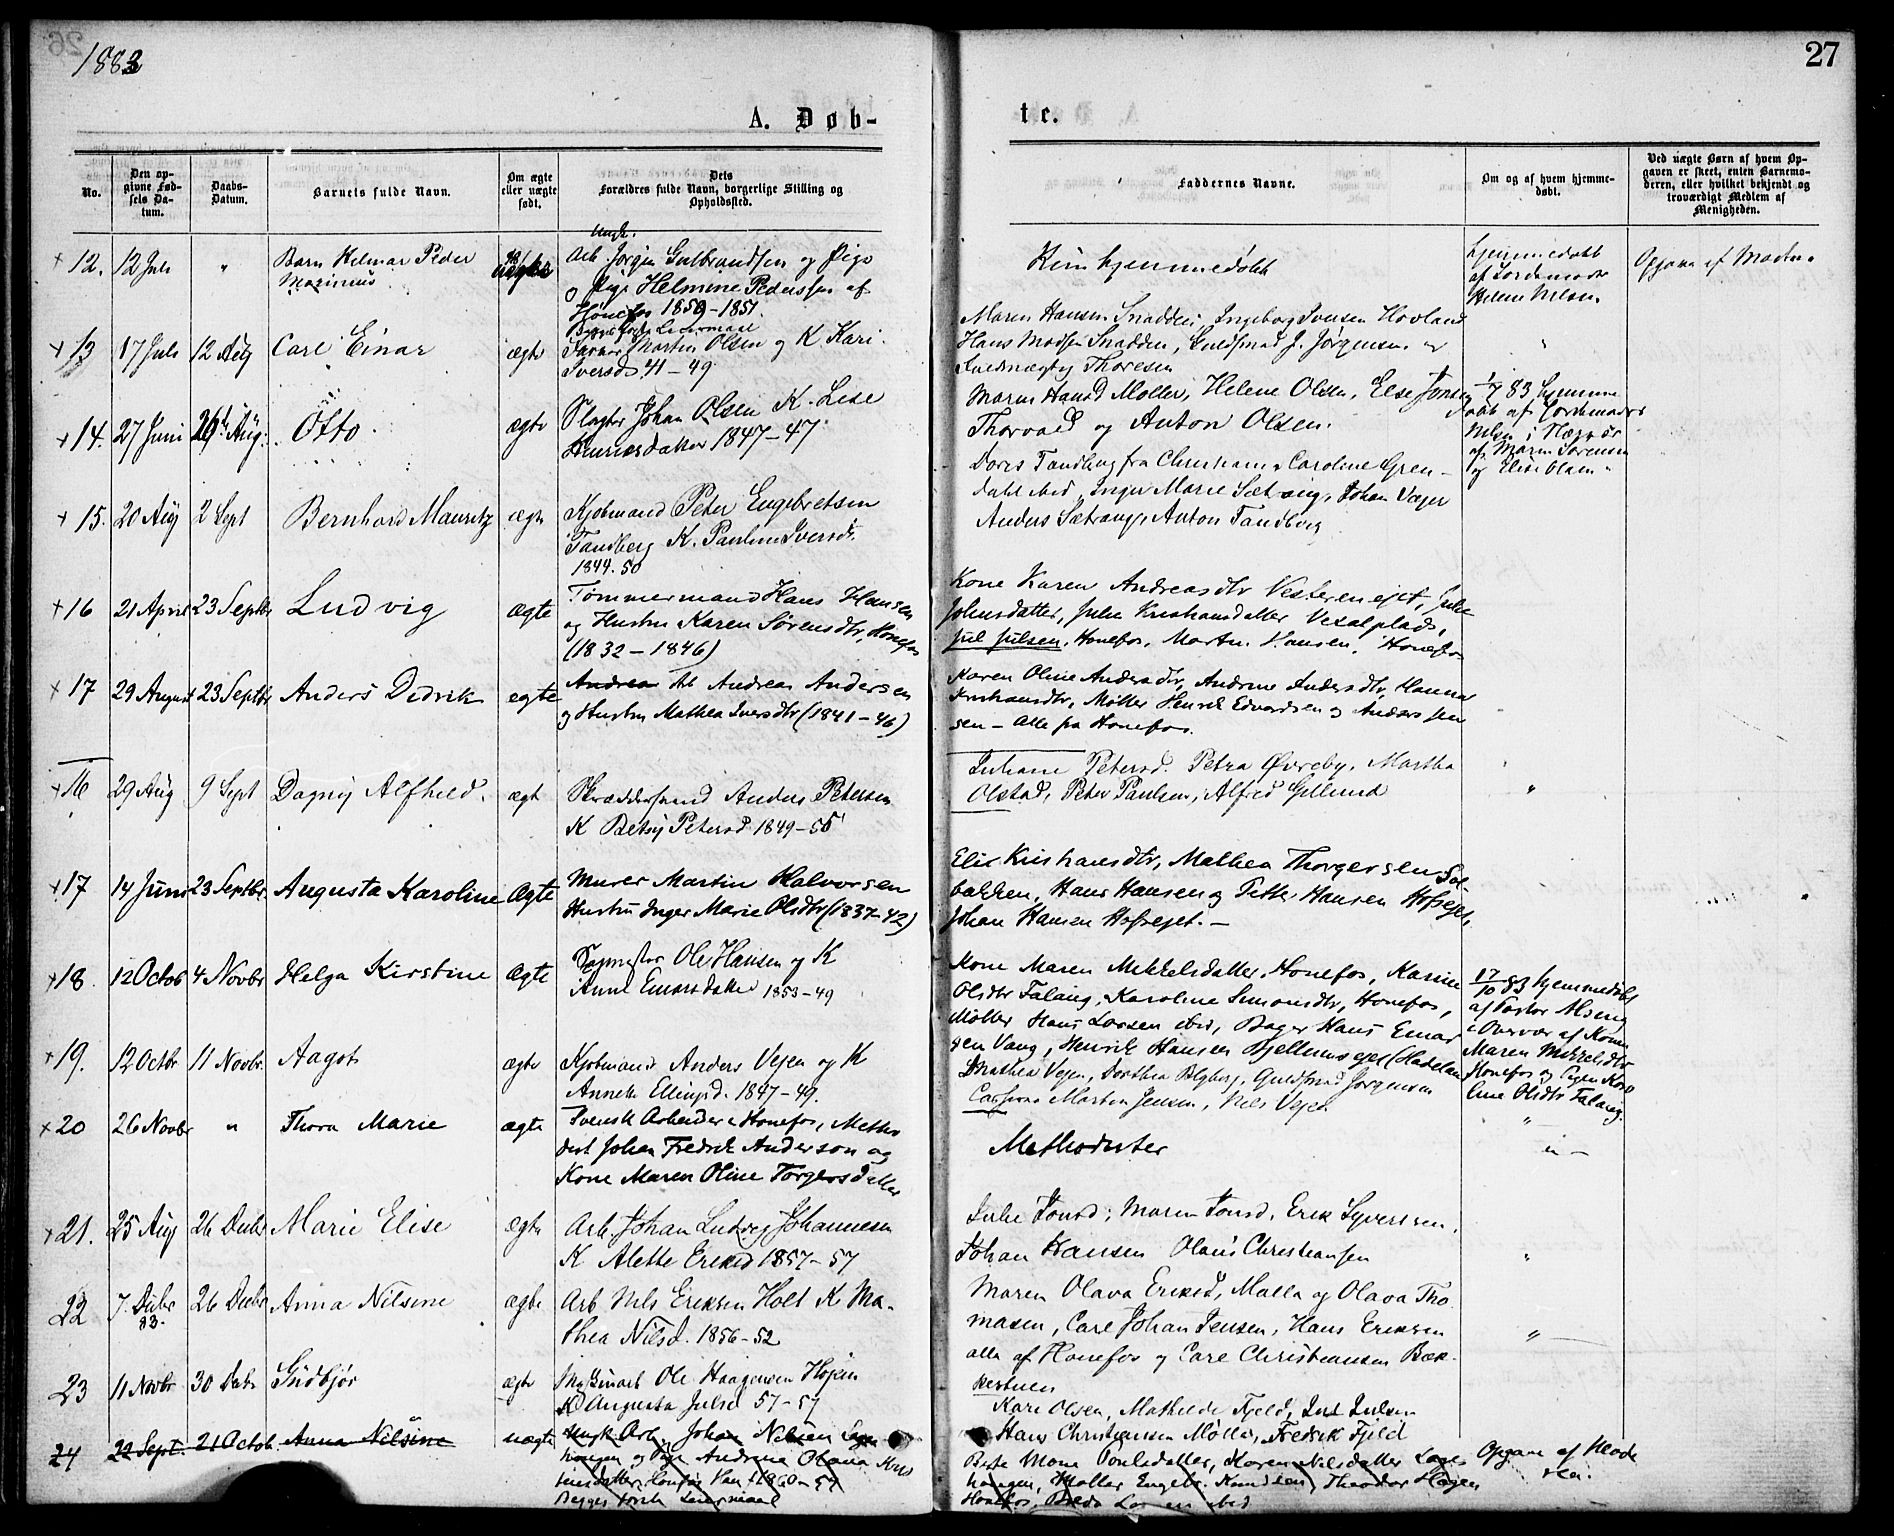 1883
27
A. Døb-
te.
No.
Den op-
givne Fød-
sels Da-
tum.
Daabs-
Datum.
Barnets fulde Navn.
Om ægte
eller uægte
født.
Dets
Forældres fulde Navn, borgerlige Stilling og
Opholdssted.
Faddernes Navne.
Om og af hvem hjemme-
døbt.
Ved uægte Børn af hvem Op-
gaven er skeet, enten Barnemo-
deren, eller hvilket bekjendt og
troværdigt Medlem af
Menigheden.
12. 12 Juli " Barn Hilmar Peder
Marinius
uægte
Ungk.
Arb. Jørgen Gulbrandsen og Pige
Helmine Pedersen af
Hønefos 1859-1851.
Kun hjemmedøbt
hjemmedøbt
af Jordemoder
Helene Nilsen
Opgave af Moderen
13 17 Juli 12 Aug Carl Einar ægte
Martin Olsen og K Kari
Iversd. 41-49
Maren Hansen Snadden, Ingeborg Iversen Hovland
Hans Madsen Snadden, Guldsmed J. Jørgensen og
Thoresen
"
14. 27 Juni 26 Aug. Otto ægte
Slagter Johan Olsen K. Lise
1847-47
Maren Hansd Møller, Helene Olsen, Else Jonsen
Thorvald og Anton Olsen.
1/7 83 hjemme
døbt af Jordemoder
Nilsen i Nærvær
af Maren Sørensen
og Elise Olsen
15. 20 Aug 2 Sept Bernhard Mauritz ægte
Kjøbmand Peter Engebretsen
Tandberg K. Pauline Iversd.
1844-50
Doris Tandberg fra Christiania, Caroline Gren-
dahl ibid, Inger Marie Sætrang, Johan Vager
Anders Sætrang, Anton Tandberg
16 21 April 23 Septbr Ludvig ægte
Tømmermand Hans Hansen
og Hustru Karen Sørensdtr, Honefos
(1832-1846)
Kone Karen Andreasdtr Vesterneiet, Julie
Johnsdatter, Julie Kristiansdatter Vesalplads,
Jul Julsen, Honefos, Martin Hansen, Honefos
17 29 August 23 Septbr Anders Didrik egte
Andrea Arb Andreas Andersen
og Hustru Mathea Iversdtr (1841-46)
Karen Oline Andersdtr, Andrine Andersdtr, Hanna
Kristiansdtr, Møller Henrik Edvardsen og Anders Jen
sen - Alle fra Honefos.
16 29 Aug 9 Sept Dagny Alfhild. ægte
Skræddersvend Anders Petersen
K Betsy Petersd 1849-55
Juliane Petersd. Petra Øvreby, Martha
Olstad, Peter Paulsen, Alfred Gellund
"
17 14 Juni 23 Septbr. Augusta Karoline Ægte
Murer Martin Halvorsen
Hustru Inger Marie Olsdtr (1837-42)
Elise Kristiansdtr, Mathea Thorgersen Sol-
bakken, Hans Hansen og Petter Hansen Hofseiet,
Johan Hansen Hofseiet. -
18. 12 Octob 4 Novbr Helga Kirstine Ægte
Sagmester Ole Hansen og K
Anne Einarsdatter 1853-49
Kone Maren Mikkelsdatter, Honefos, Karine
Olsdtr Falang, Karoline Simonsdtr, Honefos,
Møller Hans Larsen ibid, Bager Hans Einar
sen Vang, Henrik Hansen Bjellumseiet (Hadeland
17/10 83 hjemmedøbt
af Pastor Alsing
i Overvær af Kone
Maren Mikkelsdtr
Honefos og Pigen Karo
line Olsdtr Falang.
19. 12 Octbr 11 Novbr. Aagot ægte
Kjøbmand Anders Vejen og K
Anneth Ellingsd. 1847-49.
Mathea Vejen, Dorthea Blyberg, Guldsmed Jørgensen
Martin Jensen, Nils Vejen
"
20 26 Novbr " Thora Marie ægte
Svensk Arbeider i Honefos, Metho
dist Johan Fredrik Anderson og
Kone Maren Oline Torgersdatter
Methodister
" -
21. 25 Aug 26 Decbr Marie Elise ægte
Arb. Johan Ludvig Johannesen
K Alette Eriksd 1857-57
Julie Jonsd, Maren Jonsd, Erik Syversen,
Johan Hansen Olaus Christiansen
"
22 7. Decbr 83. 26 Decbr Anna Nilsine ægte
Arb Nils Eriksen Holt K Ma-
thea Nilsd. 1856-52
Maren Olava Eriksd, Malla og Olava Tho
masen, Carl Johan Jensen, Hans Eriksen
alle af Honefos og Carl Christiansen Bæk-
kestuen
"
23 11 Novbr 30 Decbr Gudbjør ægte
Ole Haagensen Højen
K Augusta Julsd 57-57
Kari Olsen, Mathilde Fjeld, Jul Julsen
Hans Christiansen Møller, Fredrik Fjeld
24 22 Sept. 21 Octob Anna Nilsine uægte
Ungk Arb. Johan Nilsen Lager
haugen og Pige Andrine Olava Kris
tiansdatter Honefos 1860-59
Begges første Leiermaal
Maren Nilsdatter Lager
haugen, Møller Engebr. Knudsen, Theodor Hagen
Honefos, ibid
Opgave af Mode
ren.